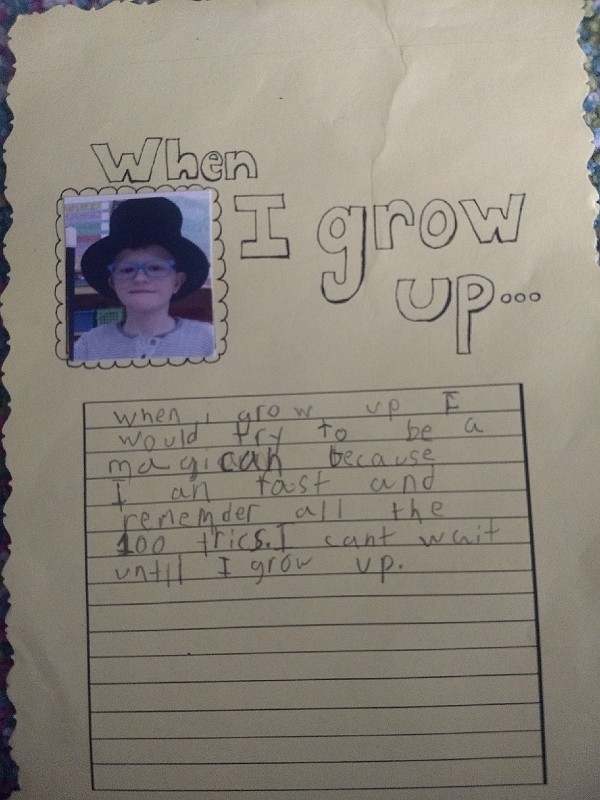 When
I grow
up...
when i grow up I
would try to be a
magican because
I an fast and
rememder all the
100 trics. I cant wait
until I grow up.